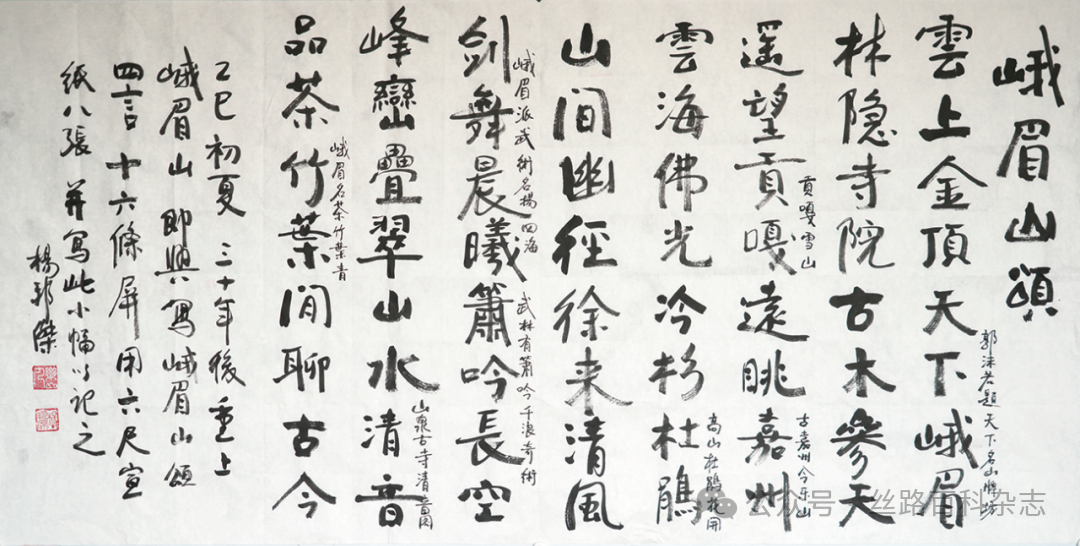 峨眉山頌
雲上金頂天下峨眉
郭沫若題天下名山牌坊
林隐寺院古木參天
遥望貢嘎遠眺嘉州
貢嘎雪山
古嘉州今乐山
雲海佛光冷杉杜鵑
高山杜鹃花開
山间幽徑徐来清風
剑舞晨曦簫吟長空
峨眉派武術名揚四海
武林有簫吟千浪奇術
峰巒疊翠山水清音
山泉古寺清音阁
品茶竹葉间聊古今
峨眉名茶竹葉青
乙巳初夏三十年後重上
峨眉山即興寫峨眉山頌
四言十六條屏用六尺宣
纸八張并寫此小幅以记之
楊邦傑
公众号·丝路百科杂志